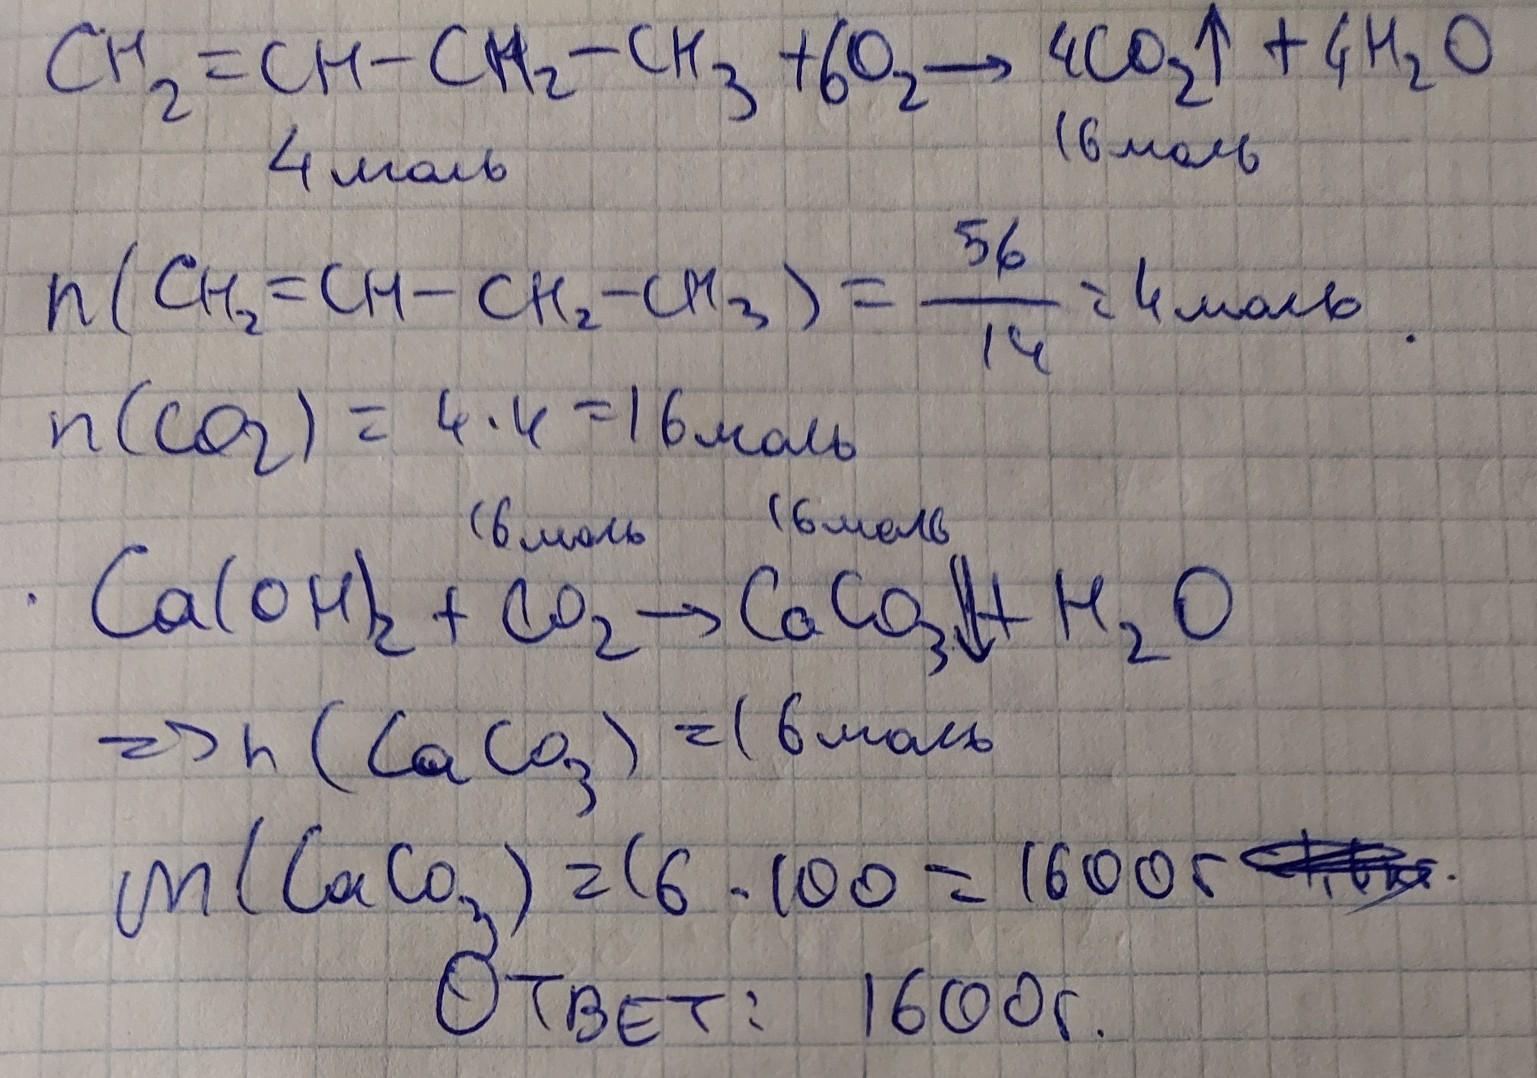 CH₂=CH-CH₂-CH₃ +6O₂ → 4CO₂↑ + 4H₂O
4 моль 16 моль
n(CH₂=CH-CH₂-CH₃) = 56/14 = 4 моль.
n(CO₂) = 4·4 = 16 моль
16 моль 16 моль
Ca(OH)₂ + CO₂ → CaCO₃↓ + H₂O
=> n(CaCO₃) = 16 моль
m(CaCO₃) = 16·100 = 1600г
Ответ: 1600г.